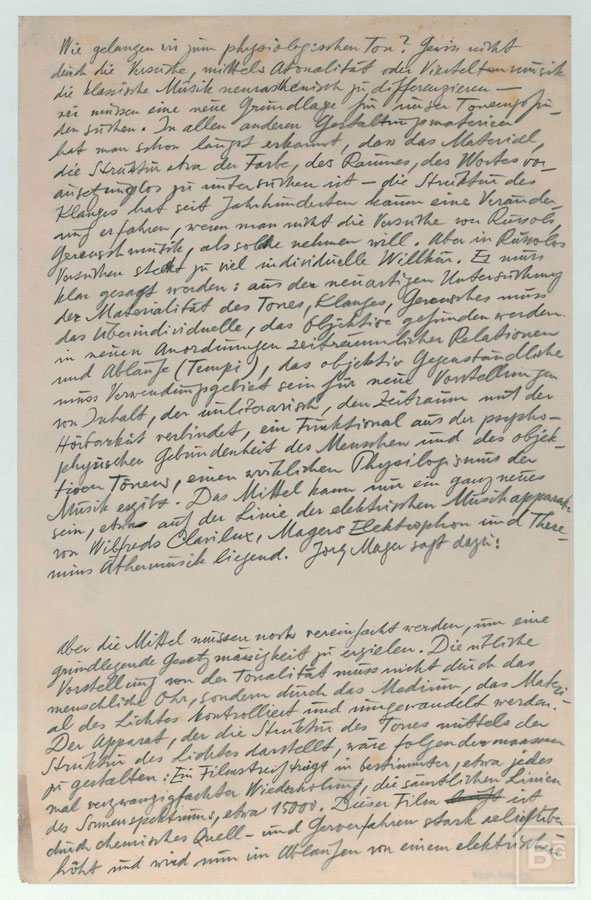 Wie gelangen wir zum physiologischen Ton? Gewiss nicht
durch die Versuche, mittels Atonalität oder Vierteltonmusik
die klassische Musik neurasthenisch zu differenzieren —
wir müssen eine neue Grundlage für unser Tonempfin-
den suchen. In allen anderen Gestaltungsmaterien
hat man schon längst erkannt, dass das Material,
die Struktur etwa der Farbe, des Raumes, des Wortes vor-
aussetzunglos zu untersuchen ist — die Struktur des
Klanges hat seit Jahrhunderten kaum eine Veränder-
ung erfahren, wenn man nicht die Versuche von Russolos
Geräuschmusik, als solche nehmen will. Aber in Russolos
Versuchen steckt zu viel individuelle Willkür. Es muss
klar gesagt werden: aus der neuartigen Untersuchung
der Materialität des Tones, Klanges, Geräusches muss
das Überindividuelle, das Objektive gefunden werden.
in neuen Anordnungen zeiträumlicher Relationen
und Abläufe (Tempi), das objektiv Gegenständliche
muss Verwendungsgebiet sein für neue Vorstellungen
von Inhalt, der unliterarisch, den Zeitraum mit der
Hörbarkeit verbindet, ein Funktional aus der psycho-
physischen Gebundenheit des Menschen und des objek-
tiven Tones, einen wirklichen Physiologismus der
Musik ergibt. Das Mittel kann nur ein ganz neues
sein, etwa auf der Linie der elektrischen Musikapparate
von Wilfreds Clavilux, Magers Elektrophon und There-
mins Äthermusik liegend. Jörg Mager sagt dazu:
Aber die Mittel müssen noch vereinfacht werden, um eine
grundlegende Gesetzmässigkeit zu erzielen. Die übliche
Vorstellung von der Tonalität muss nicht durch das
menschliche Ohr, sondern durch das Medium, das Materi-
al des Lichtes kontrolliert und umgewandelt werden.
Der Apparat, der die Struktur des Tones mittels der
Struktur des Lichtes darstellt, wäre folgendermassen
zu gestalten: Ein Filmstreif trägt in bestimmter, etwa jedes
mal verzwanzigfachter Wiederholung, die sämtlichen Linien
des Sonnenspektrums, etwa 15000. Dieser Film ist
durch chemisches Quell- und Gerbverfahren stark reliefüber-
höht und wird nun im Ablaufen von einem elektrischen
BG